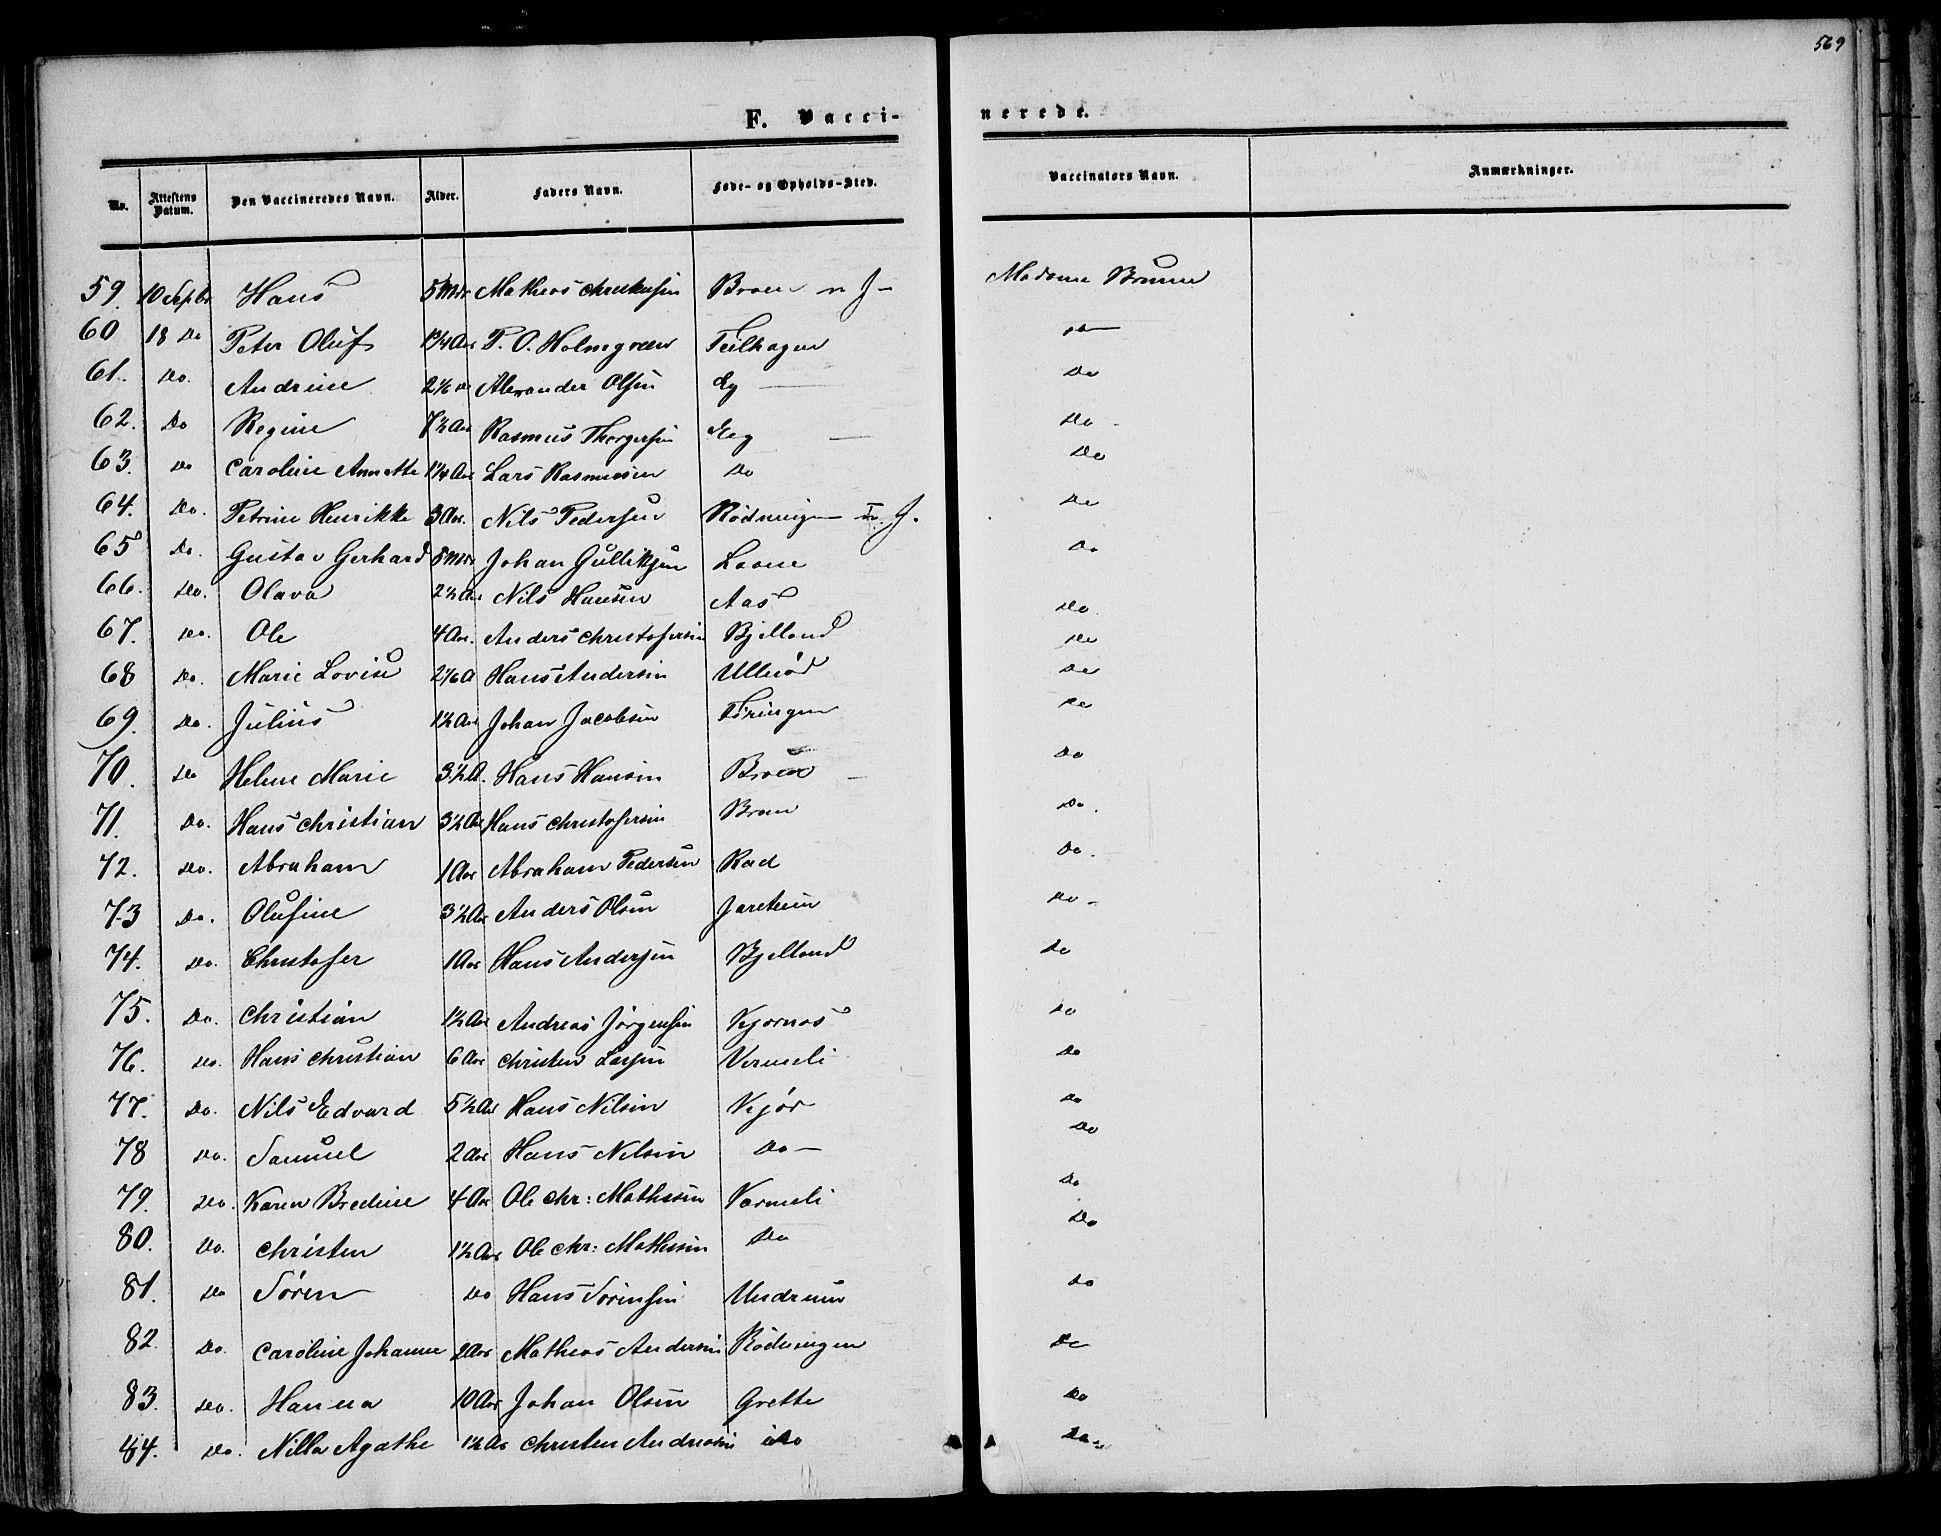 569
F. Vacci-
nerede.
No. Attestens Datum. Den Vaccineredes Navn. Alder. Faders Navn. Føde- og Opholds-Sted. Vaccinators Navn. Anmærkninger.
59. 10 Septbr Hans 5 Mdr Mathias Christensen Madame
60 18 Do Peter Oluf 1¾ Aar P. O. Holmgreen Do
61. Do. Andrine 2 1/6 Do Alexander Olsen Eg Do
62. Do Regine 7½ Aar Rasmus Thorgersen Eeg Do
63. Do Caroline Annette 1¼ Aar Lars Rasmussen Do Do
64. Do. Petrine Henrikke 3 Aar. Nils Pedersen Rødningen Do
65 Do. Gustav Gerhard 8 Mdr Johan Gulliksen Do
66. Do. Olava 2½ Aar Nils Hansen Aas Do
67. Do. Ole 4 Aar. Anders Christofersen Bjelland Do
68 Do. Marie Lovise 2 1/6 A Hans Andersen Ulleød Do
69. Do. Julius 1½ Aar Johan Jacobsen Do
70. Do Helene Marie 3½ A. Hans Hansen Do
71. Do. Hans Christian 3½ Aar Hans Christofersen Do.
72. Do. Abraham 1 Aar Abraham Pedersen Rød Do.
73 Do. Olufine 3½ Aar Anders Olsen Do
74. Do. Christofer 1 Aar Hans Andersen Bjelland Do
75. Do. Christian 1½ Aar Andreas Jørgensen Kjærnæs Do
76. Do. Hans Christian 6 Aar Christen Larsen Vermeli Do
77. Do. Nils Edvard 5½ Aar Hans Nilsen Kjør Do
78 Do. Samuel 2 Aar Hans Nilsen Do Do
79. Do. Karen Bredine 4 Aar Ole Chr: Mathisen Vermeli Do
80. Do. Christen 1½ Aar Ole Chr: Mathisen Do Do
81. Do Sören Do Hans Sörensen Undrum Do
82. Do. Caroline Johanne 2 Aar Mathias Andersen Rødningen Do
83. Do. Hanna 10 Aar Johan Olsen Grette Do
84. Do. Nilla Agathe 1½ Aar Christen Andreasen Do Do